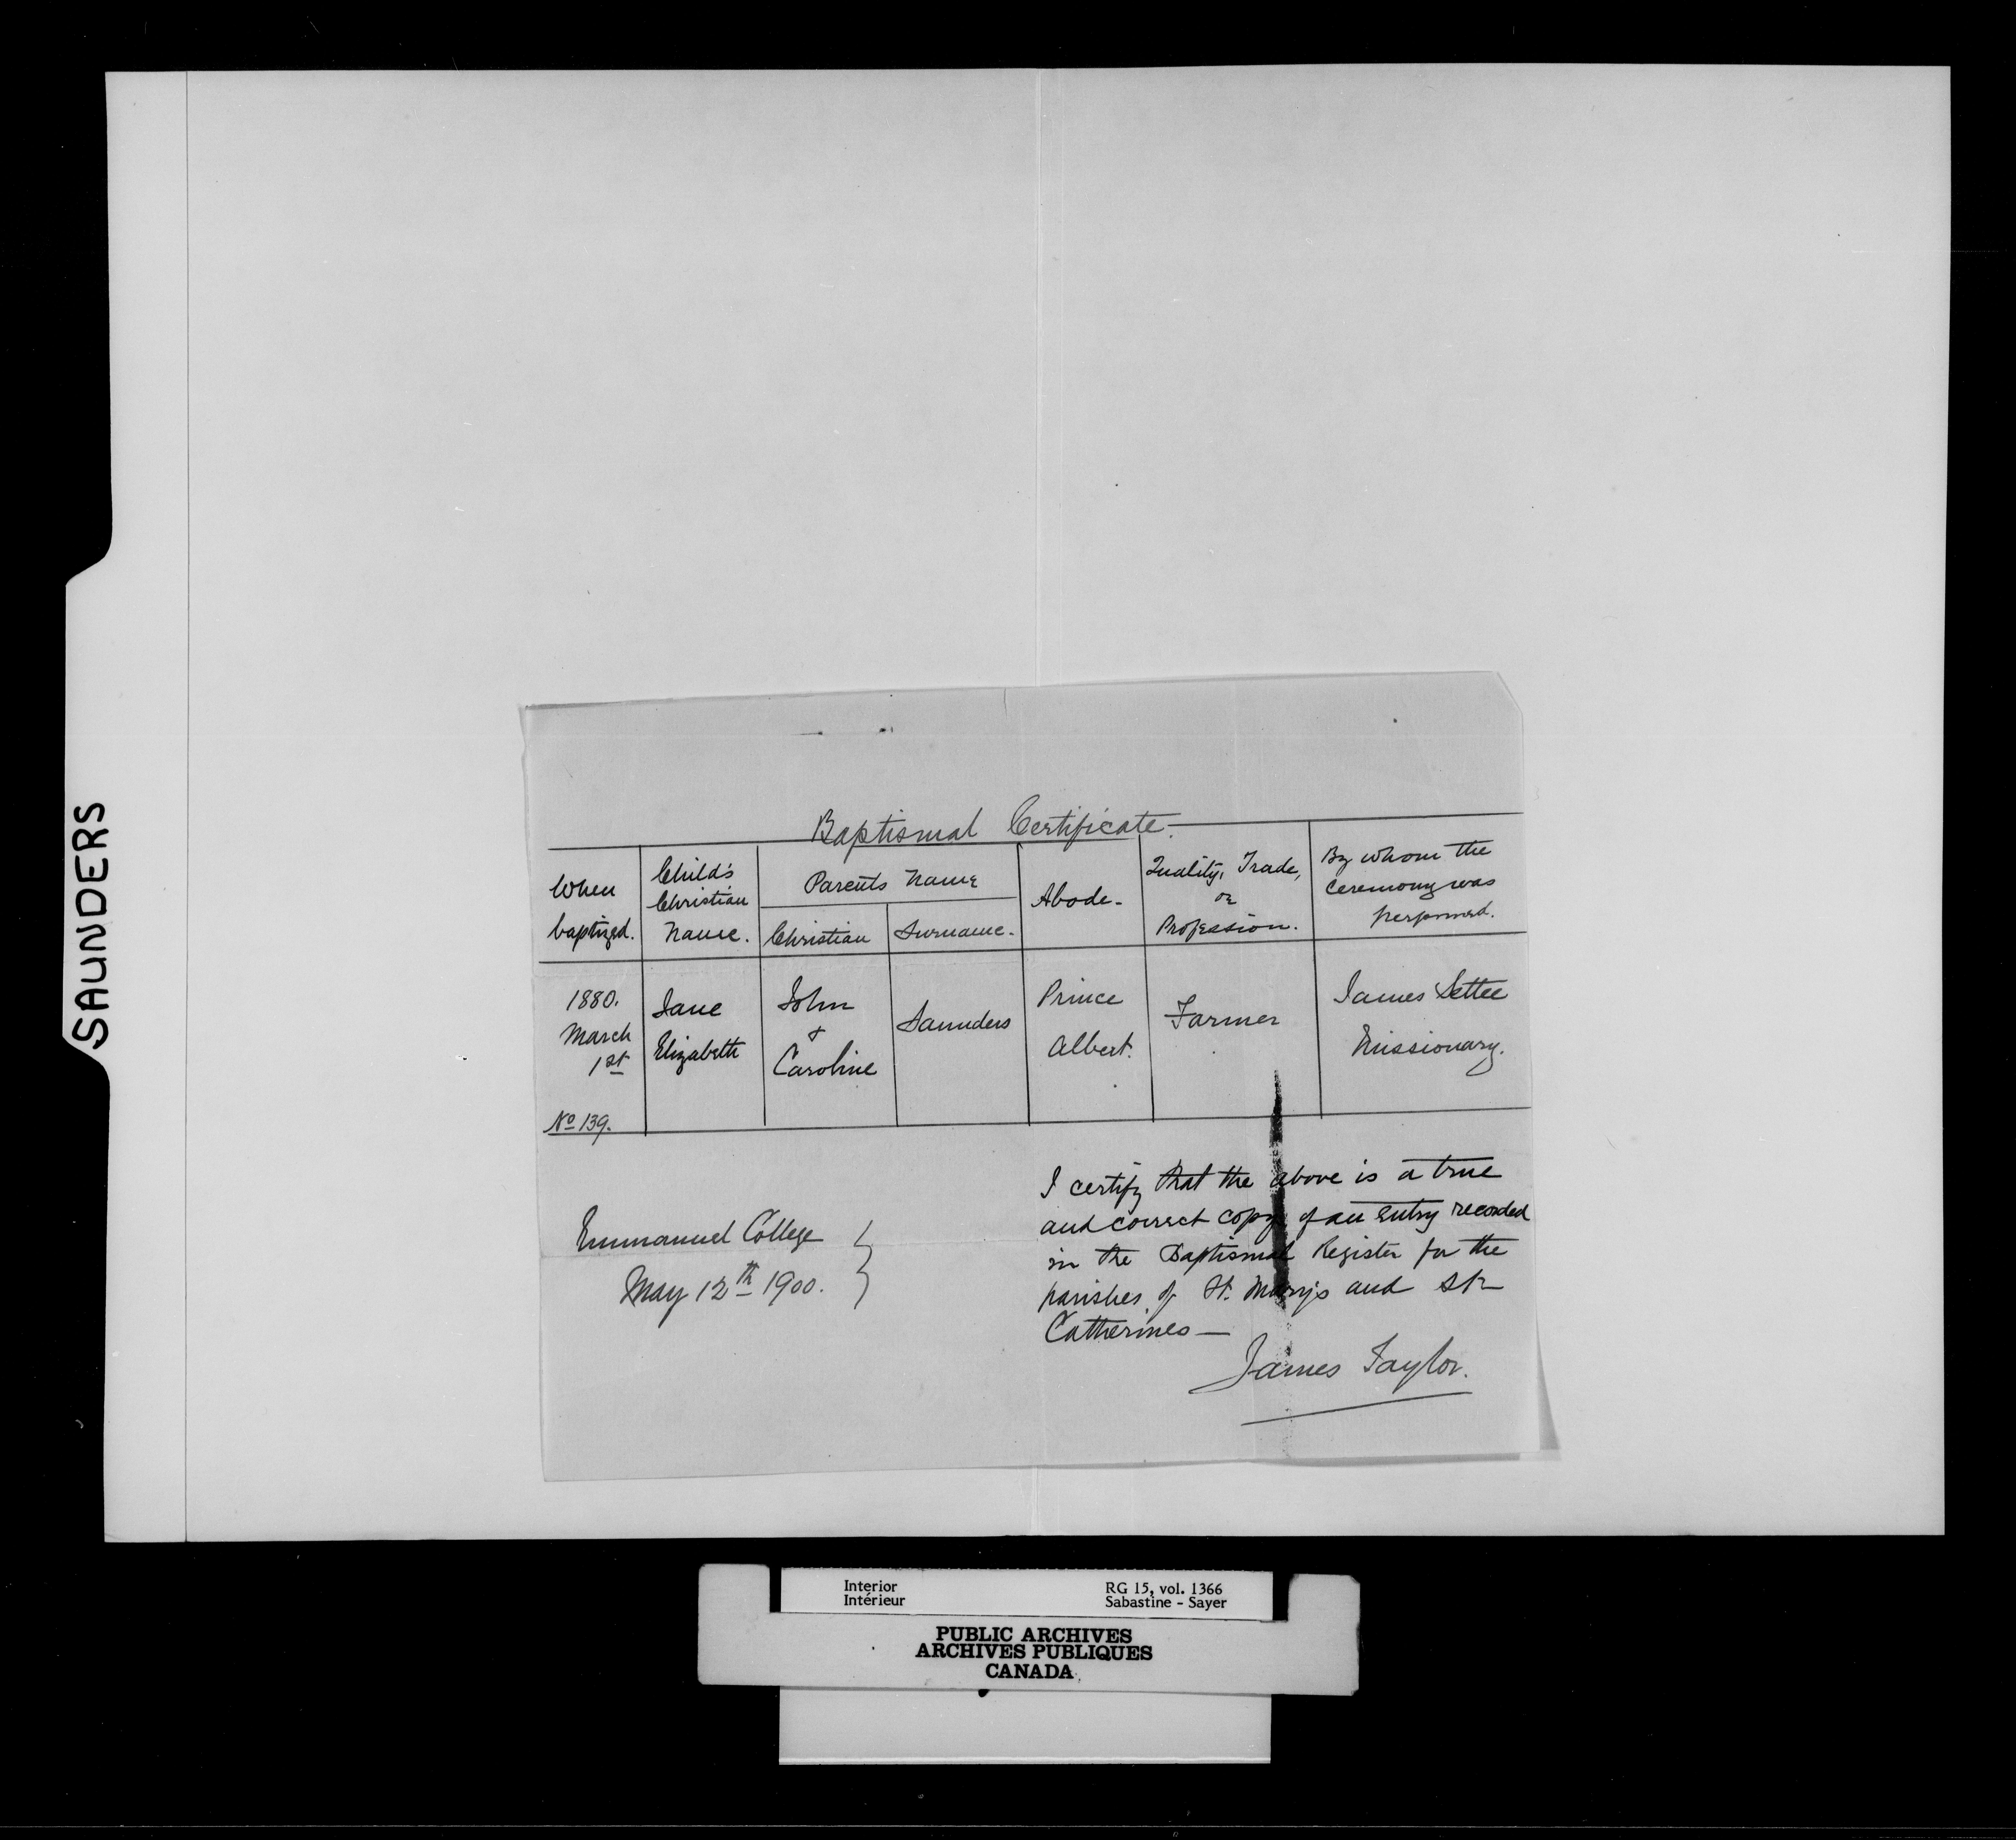 SAUNDERS
Baptismal Certificate.
When baptized.
Child's Christian Name.
Parents Name
Christian
Surname.
Abode.
Quality, Trade, or Profession.
By whom the ceremony was performed.
1880. March 1st
No 139.
Jane Elizabeth
John & Caroline
Saunders
Prince Albert.
Farmer
James Settee Missionary.
Emmanuel College
May 12th 1900.
I certify that the above is a true
and correct copy of an entry recorded
in the Baptismal Register for the
parishes of St. Mary's and St.
Catherines —
James Taylor.
Interior
Intérieur
RG 15, vol. 1366
Sabastine - Sayer
PUBLIC ARCHIVES
ARCHIVES PUBLIQUES
CANADA